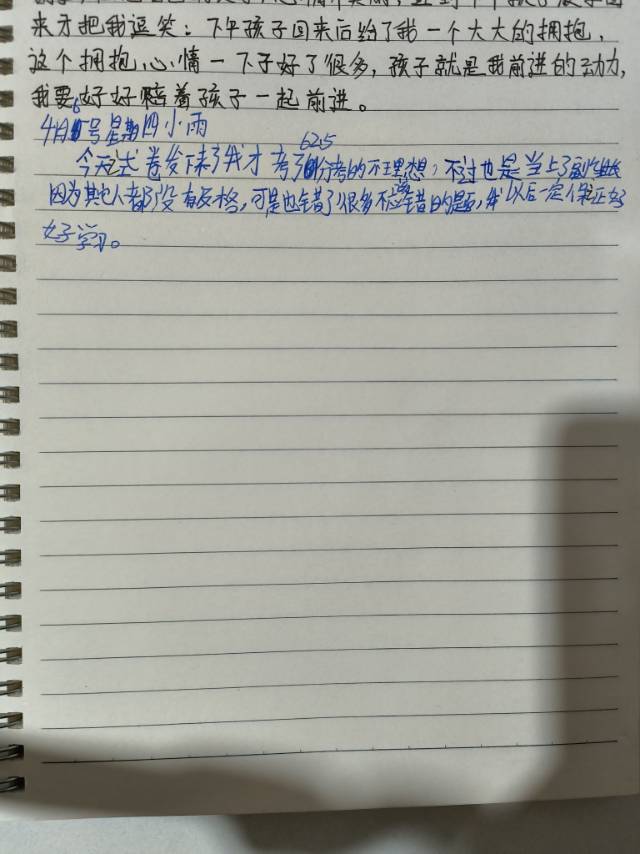 来才把我逗笑：下午孩子回来后给了我一个大大的拥抱，
这个拥抱，心情一下子好了很多，孩子就是我前进的动力，
我要好好陪着孩子一起前进。
4月6号星期四小雨
今天试卷发下来了我才考了62.5分考的不理想，不过也是当上了副组长
因为其他人都没有及格，可是也错了很多不应该错的题，我以后一定保证好
好学习。